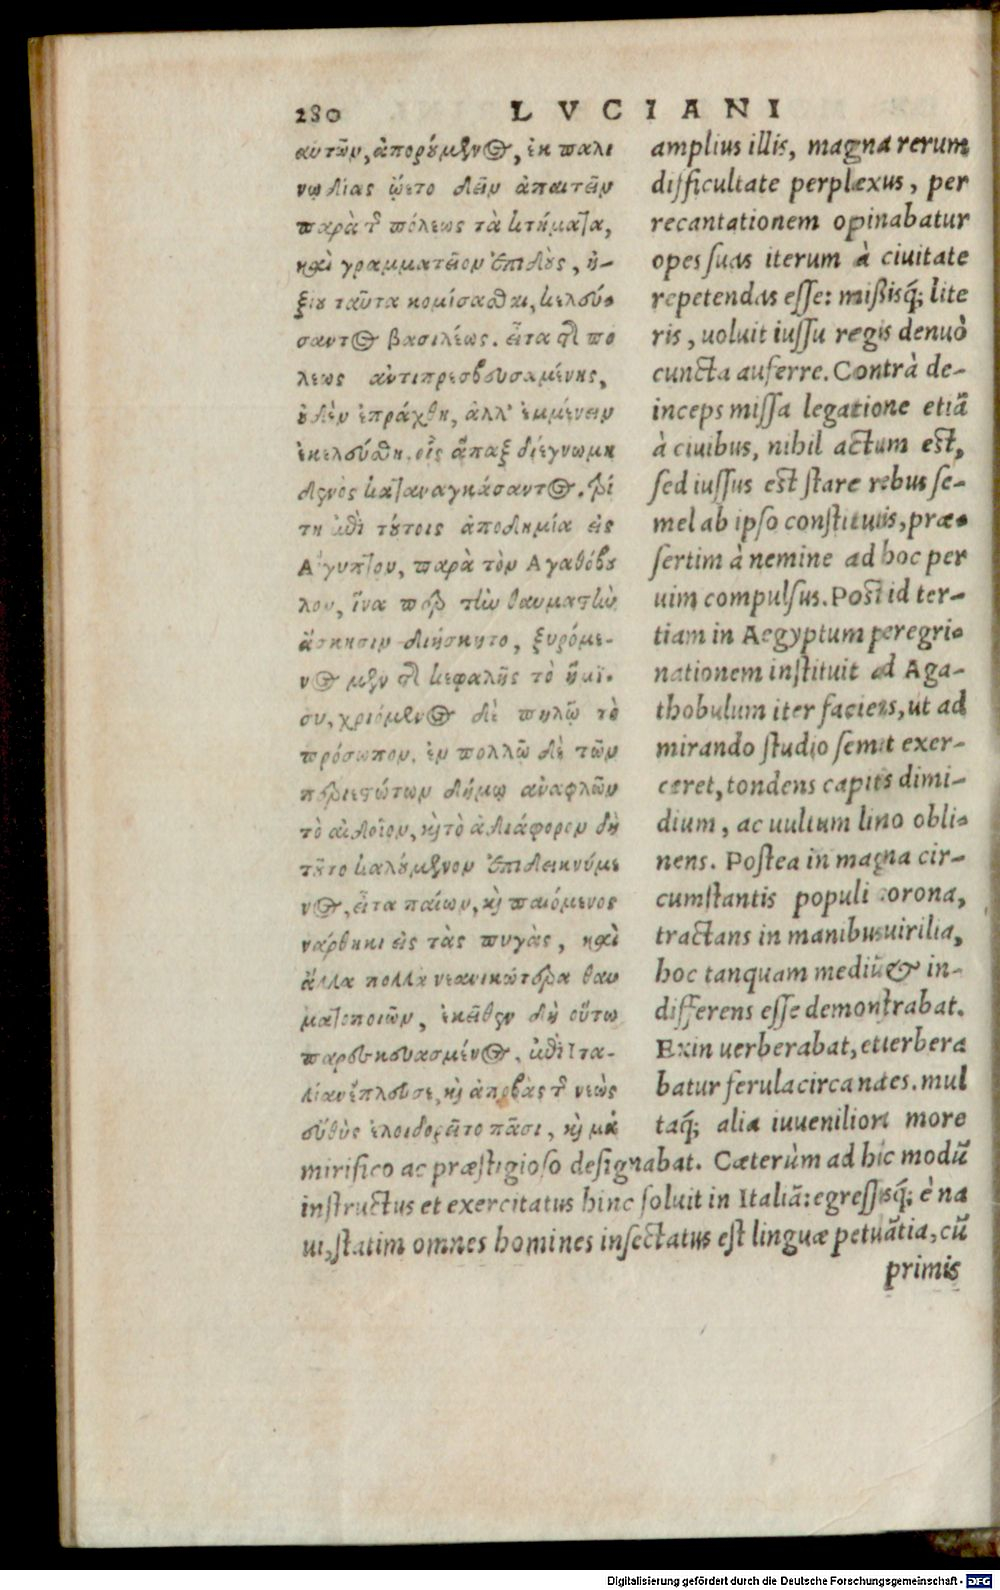 280 LVCIANI
αυτῶν, ἀπορούμεν@, ἐκ παλι
νῳδίας ᾤετο δεῖν ἀπαιτεῖν
παρὰ τ πόλεως τὰ κτήματα,
καὶ γραμματεῖον ἐπιδοὺς, ἠ-
ξίου ταῦτα κομίσασθαι, κελεύ-
σαντ@ βασιλέως. εἶτα τ πό
λεως ἀντιπρεσβευσαμένης,
οὐδὲν ἐπράχθη, ἀλλ' ἐμμένειν
ἐκελεύσθη, οἷς ἅπαξ διέγνω μη
δενὸς καταναγκάσαντ@. τρί
τη ἐπὶ τούτοις ἀποδημία εἰς
Αἴγυπτον, παρὰ τὸν Αγαθόβου
λον, ἵνα περ τὴν θαυμαστὴν
ἄσκησιν διήσκητο, ξυρόμε-
ν@ μὲν τ κεφαλῆς τὸ ἥμι-
συ, χριόμεν@ δὲ πηλῷ τὸ
πρόσωπον, ἐν πολλῷ δὲ τῶν
περιεστώτων δήμῳ ἀναφλῶν
τὸ αἰδοῖον, καὶ τὸ ἀδιάφορον δὴ
τοῦτο καλούμενον ἐπιδεικνύμε
ν@, εἶτα παίων, καὶ παιόμενος
νάρθηκι εἰς τὰς πυγὰς, καὶ
ἄλλα πολλὰ νεανικώτερα θαυ
ματοποιῶν, ἐκεῖθεν δὴ οὕτω
παρεσκευασμέν@, ἐπὶ Ιτα-
λίαν ἔπλευσε, καὶ ἀποβὰς τ νεὼς
εὐθὺς ἐλοιδορεῖτο πᾶσι, καὶ μά
amplius illis, magna rerum
difficultate perplexus, per
recantationem opinabatur
opes suas iterum à ciuitate
repetendas esse: mißisq́; lite
ris, uoluit iussu regis denuò
cuncta auferre. Contrà de-
inceps missa legatione etiã
à ciuibus, nihil actum est,
sed iussus est stare rebus se-
mel ab ipso constitutis, præ-
sertim à nemine ad hoc per
uim compulsus. Post id ter-
tiam in Aegyptum peregri-
nationem instituit ad Aga-
thobulum iter faciens, ut ad
mirando studio semet exer-
ceret, tondens capitis dimi-
dium, ac uultum lino obli-
nens. Postea in magna cir-
cumstantis populi corona,
tractans in manibus uirilia,
hoc tanquam mediũ & in-
differens esse demonstrabat.
Exin uerberabat, et uerbera
batur ferula circa nates. mul
taq́; alia iuueniliori more
mirifico ac præstigioso designabat. Cæterùm ad hic modũ
instructus et exercitatus hinc soluit in Italiã: egressisq́; è na
ui, statim omnes homines insectatus est linguæ petuãtia, cũ
primis
Digitalisierung gefördert durch die Deutsche Forschungsgemeinschaft - DFG